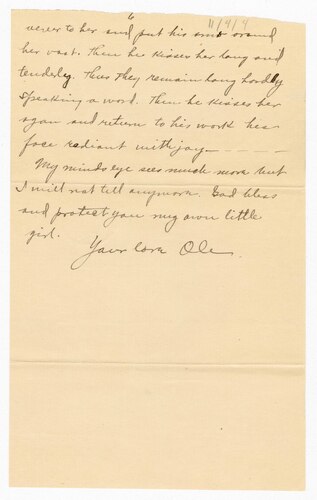 6
11/9/9
over to her and put his arms around
her vast. Then he kisses her long and
tenderly. Thus they remain long hardly
speaking a word. Then he kisses her
agan and return to his work his
face radiant with joy. — — — —
My minds eye sees much more but
I will not tell anymore. God bless
and protect you my own little
girl.
Your love Ole.